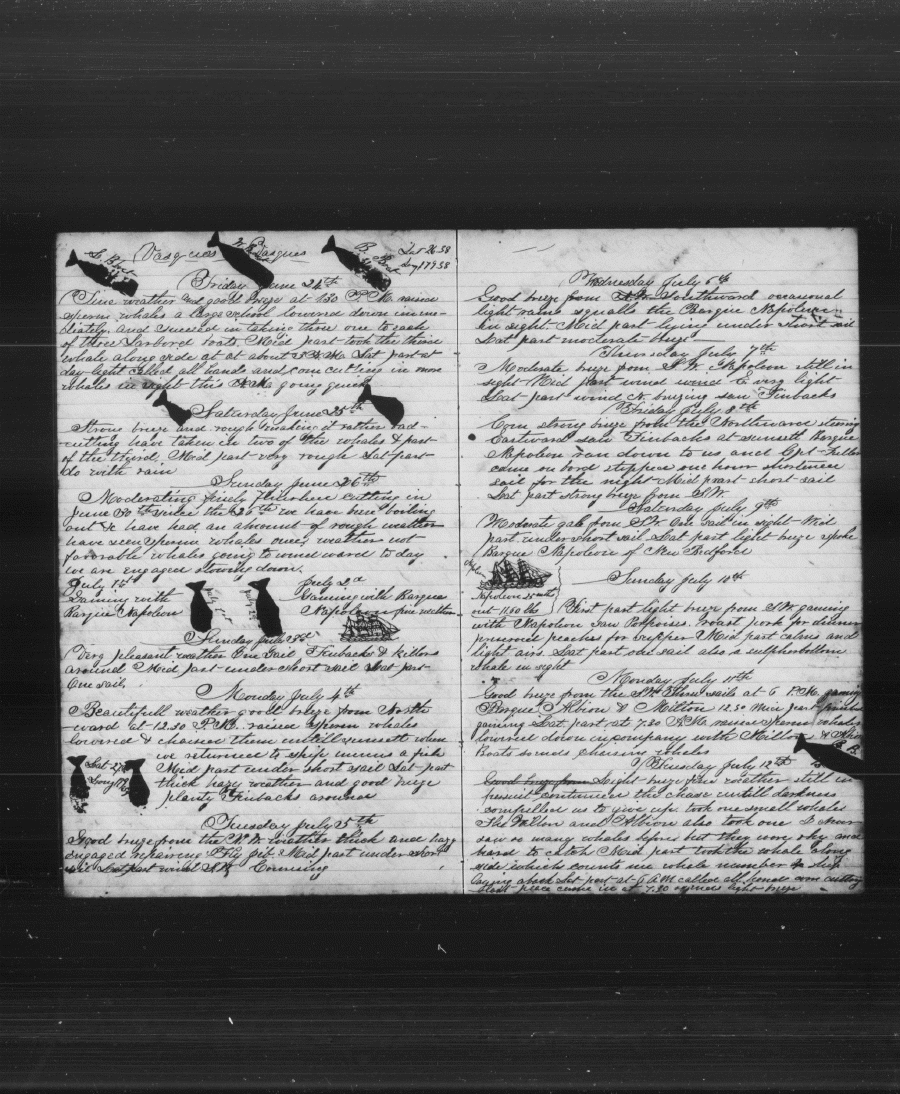 Friday June 24th
Fine weather and good breeze at 1.30 P.M. raised
sperm whales a large school lowered down imme-
diately and succeed in taking three one to each
of three Larbord boats Mid part took the third
whale along side at at about Lat part at
day light called all hands and com cutting in more
whales in sight this going
Saturday June 25th
Strong breeze and rough breaking it rather bad
cutting have taken in two of the whales & part
of the third. Mid part very rough Lat part
do with rain
Sunday June 26th
Moderating finely cutting in
June the 26th we have been boiling
out & have had an amount of rough weather
have seen sperm whales once weather not
favorable whales going to wind ward to day
we are engaged stowing down.
July 1st
Gaming with
Barque Napoleon
July 1st
July 2d
July 2d
Gaming with Barque
Napoleon fine weather
Sunday July 3d
Very pleasant weather One Sail Finbacks & killers
around Mid part under short sail Lat part
One sail
Monday July 4th
Beautifull weather good breeze from North
ward at 12.30 P.M. raised sperm whales
lowered & chased them untill sunset when
we returned to ship minus a fish
Mid part under short sail Lat part
thick hazy weather and good breeze
plenty Finbacks around
Tuesday July 5th
Good breeze from the weather thick and hazy
engaged repairing Fly jib. Mid part under short
sail Lat part wind Cruising
Wednesday July 6th
Good breeze from Southward occasional
light rain squalls the Barque Napoleon
in sight. Mid part lying under short sail
Lat part moderate breeze
Thursday July 7th
Moderate breeze from S.W. Napoleon still in
sight Mid part wind E very light
Lat part wind breezing saw Finbacks
Friday July 8th
Com strong breeze from the Northward steering
Eastward saw Finbacks at sunset Barque
Napoleon ran down to us and Cpt
came on bord stopped one hour shortened
sail for the night. Mid part short sail
Lat part strong breeze from S.W.
Saturday July 9th
Moderate gale from S.W. One sail in sight Mid
part under short sail Lat part light breeze spoke
Barque Napoleon of New Bedford
Sunday July 10th
Napoleon 25 mths
out 1150 bbls
First part light breeze from S.W. gaming
with Napoleon saw Porpoises. Roast pork for dinner
preserved peaches for supper Mid part calms and
light airs. Lat part one sail also a sulpherbottom
whale in sight
Monday July 11th
Good breeze from the S.W. Three sails at 6 P.M. gaming
Barque Albion & Milton 12.30 Mid part finished
gaming Lat part at 7.30 A.M. raised sperm whales
lowered down in company with Milton & Albion
Boats ends chasing whales
Tuesday July 12th
Good breeze from Light breeze fair weather still in
persuit continued the chase untill darkness
compelled us to give up. took one small whale
The Milton and Albion also took one I never
saw so many whales before but they were shy and
hard to catch Mid part took the whale along
side which counts one whale number
Lat part at 6 A.M. called all hands com cutting
place came in at 7.30 light breeze